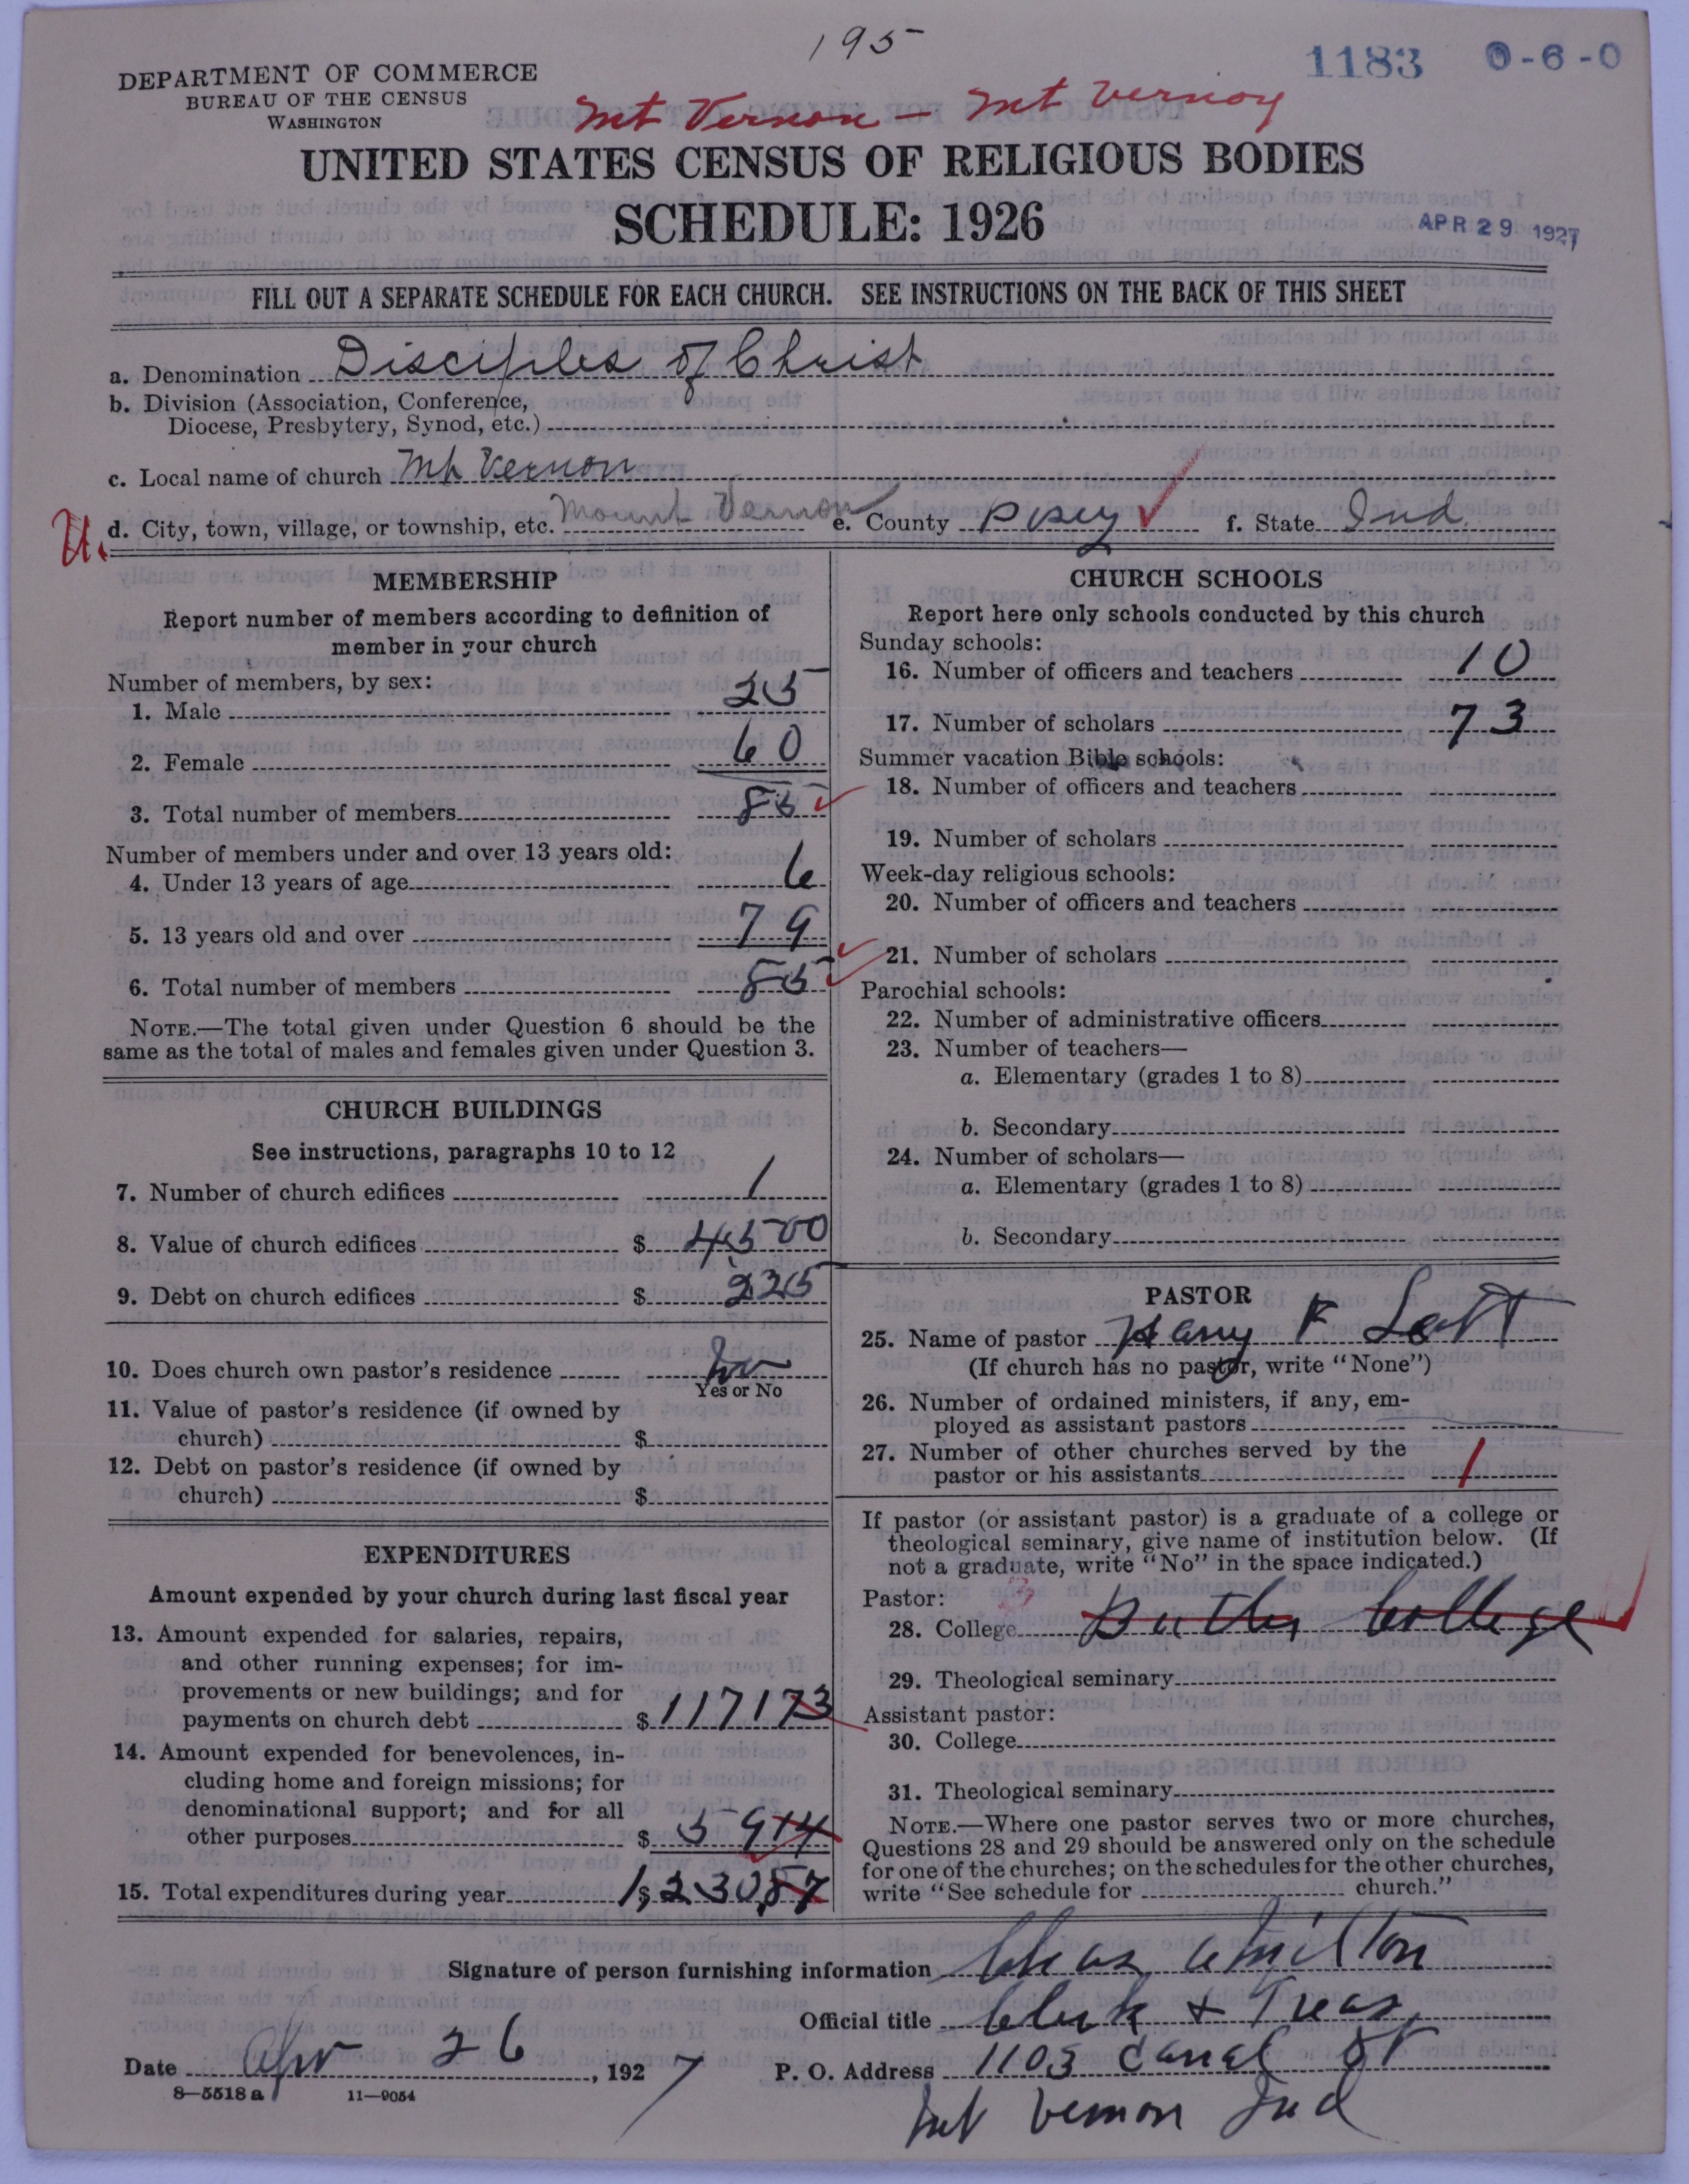 195
1183 0-6-0
DEPARTMENT OF COMMERCE
BUREAU OF THE CENSUS
WASHINGTON
Mt Vernon - Mt Vernon
UNITED STATES CENSUS OF RELIGIOUS BODIES
SCHEDULE: 1926
APR 29 1927
FILL OUT A SEPARATE SCHEDULE FOR EACH CHURCH. SEE INSTRUCTIONS ON THE BACK OF THIS SHEET
a. Denomination Disciples of Christ
b. Division (Association, Conference,
Diocese, Presbytery, Synod, etc.)
c. Local name of church Mt Vernon
U. d. City, town, village, or township, etc. Mount Vernon e. County Posey ✓ f. State Ind
MEMBERSHIP
Report number of members according to definition of
member in your church
Number of members, by sex:
1. Male 25
2. Female 60
3. Total number of members 85 ✓
Number of members under and over 13 years old:
4. Under 13 years of age 6
5. 13 years old and over 79 ✓
6. Total number of members 85 ✓
NOTE.—The total given under Question 6 should be the
same as the total of males and females given under Question 3.
CHURCH BUILDINGS
See instructions, paragraphs 10 to 12
7. Number of church edifices 1
8. Value of church edifices $ 4500
9. Debt on church edifices $ 225
10. Does church own pastor's residence No
Yes or No
11. Value of pastor's residence (if owned by
church) $
12. Debt on pastor's residence (if owned by
church) $
EXPENDITURES
Amount expended by your church during last fiscal year
13. Amount expended for salaries, repairs,
and other running expenses; for im-
provements or new buildings; and for
payments on church debt $ 117173
14. Amount expended for benevolences, in-
cluding home and foreign missions; for
denominational support; and for all
other purposes $ 5914
15. Total expenditures during year $ 1,230.87
CHURCH SCHOOLS
Report here only schools conducted by this church
Sunday schools:
16. Number of officers and teachers 10
17. Number of scholars 73
Summer vacation Bible schools:
18. Number of officers and teachers
19. Number of scholars
Week-day religious schools:
20. Number of officers and teachers
21. Number of scholars
Parochial schools:
22. Number of administrative officers
23. Number of teachers—
a. Elementary (grades 1 to 8)
b. Secondary
24. Number of scholars—
a. Elementary (grades 1 to 8)
b. Secondary
PASTOR
25. Name of pastor Harry F
(If church has no pastor, write "None")
26. Number of ordained ministers, if any, em-
ployed as assistant pastors
27. Number of other churches served by the
pastor or his assistants 1
If pastor (or assistant pastor) is a graduate of a college or
theological seminary, give name of institution below. (If
not a graduate, write "No" in the space indicated.)
Pastor:
28. College Butler College
29. Theological seminary
Assistant pastor:
30. College
31. Theological seminary
NOTE.—Where one pastor serves two or more churches,
Questions 28 and 29 should be answered only on the schedule
for one of the churches; on the schedules for the other churches,
write "See schedule for church."
Signature of person furnishing information Chas
Official title Clerk + Treas,
Date Apr 26, 1927 P. O. Address 1103 Canal St
8—5518 a 11—9054
Mt Vernon Ind